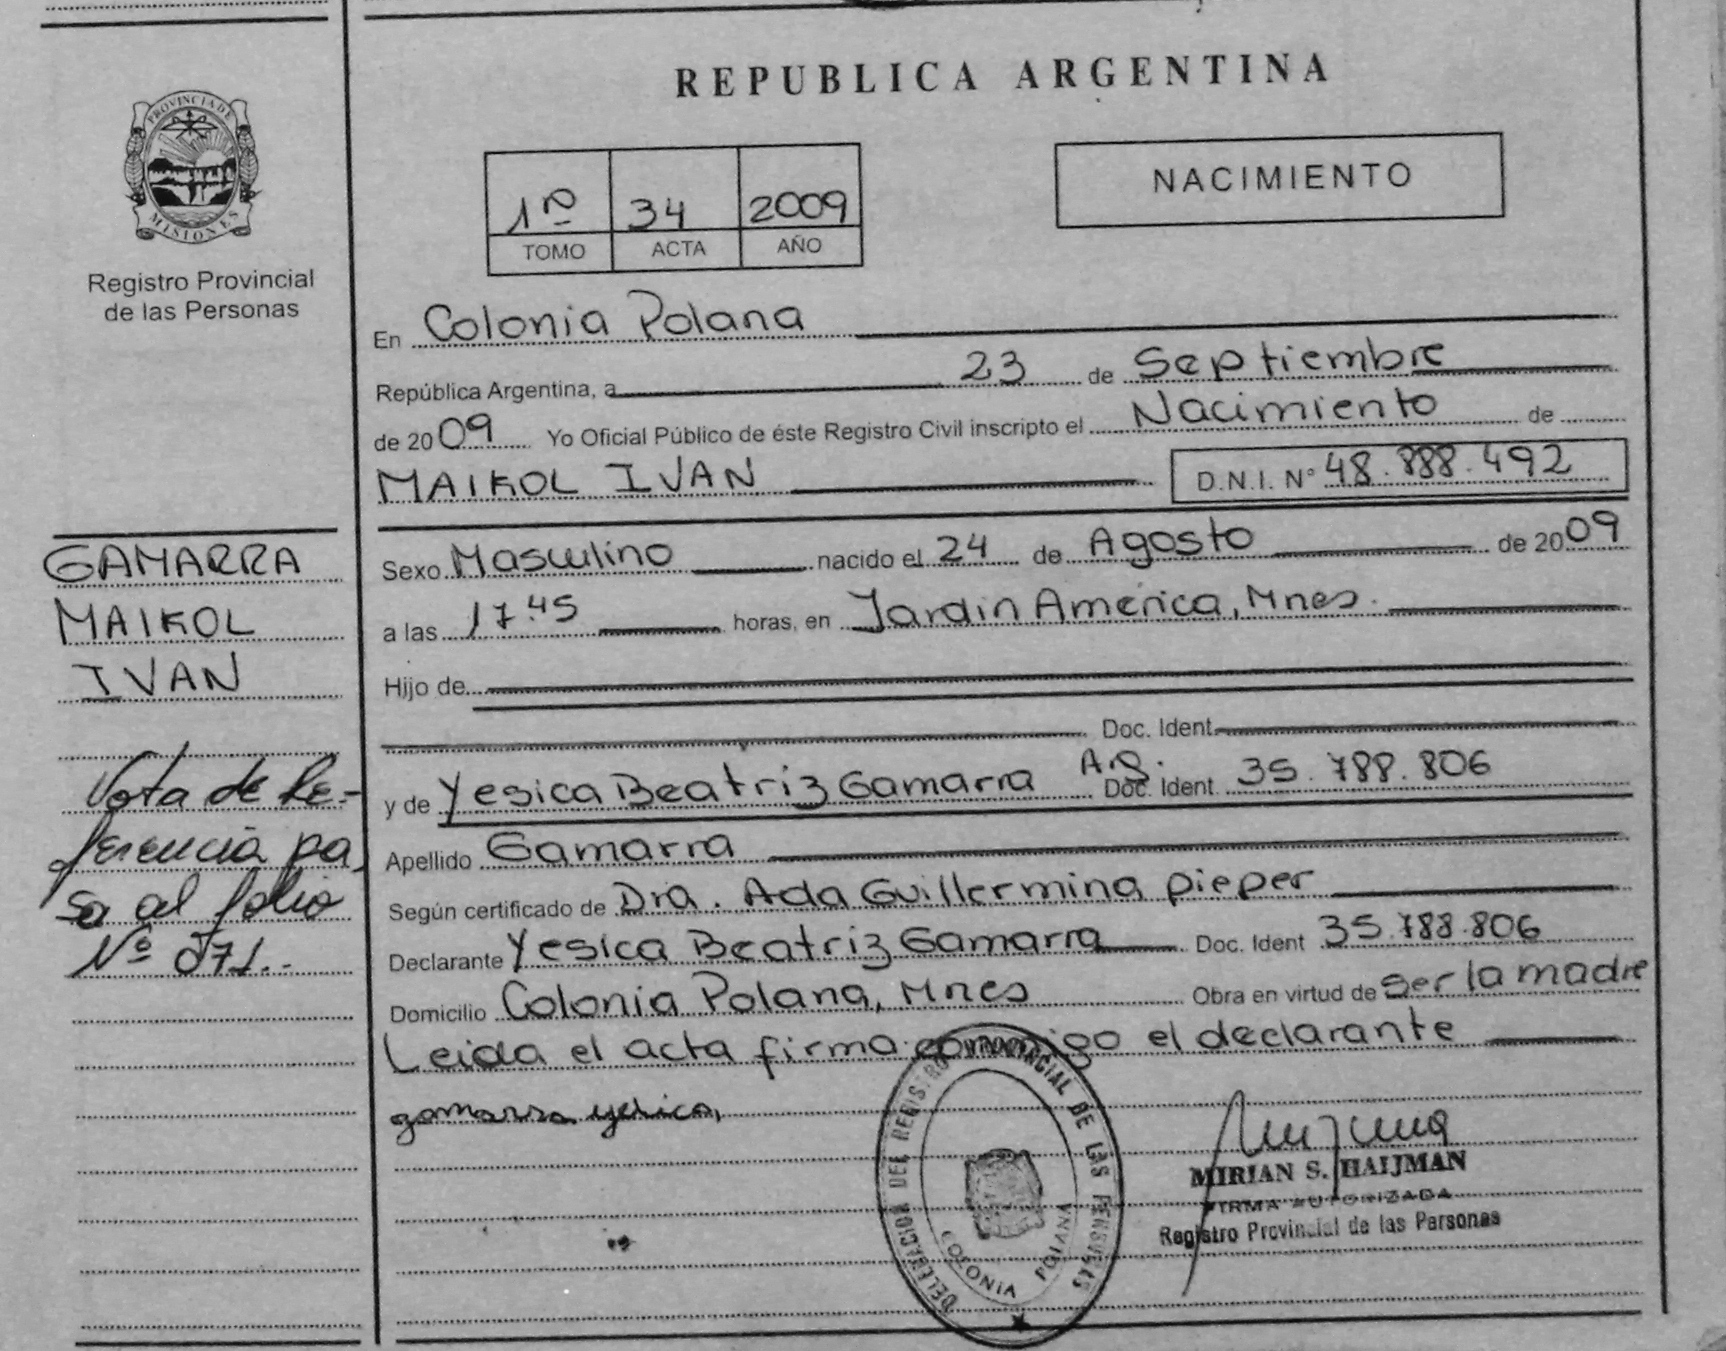 REPUBLICA ARGENTINA
PROVINCIA DE
MISIONES
Registro Provincial
de las Personas
1º 34 2009
TOMO ACTA AÑO
NACIMIENTO
En Colonia Polana
República Argentina, a 23 de Septiembre
de 2009 Yo Oficial Público de éste Registro Civil inscripto el Nacimiento de
MAIKOL IVAN D.N.I. Nº 48.888.492
GAMARRA
MAIKOL
IVAN
Nota de Re-
ferencia pa
sa al folio
Nº 071.-
Sexo Masculino nacido el 24 de Agosto de 2009
a las 17:45 horas, en Jardin America, Mnes.
Hijo de
Doc. Ident.
y de Yesica Beatriz Gamarra Arg. Doc. Ident. 35.788.806
Apellido Gamarra
Según certificado de Dra. Ada Guillermina pieper
Declarante Yesica Beatriz Gamarra Doc. Ident 35.788.806
Domicilio Colonia Polana, Mnes Obra en virtud de ser la madre
Leida el acta firma conmigo el declarante
gamarra yesica,
DELEGACION DEL REGISTRO PROVINCIAL DE LAS PERSONAS
COLONIA POLANA
MIRIAN S. HAIJMAN
FIRMA AUTORIZADA
Registro Provincial de las Personas